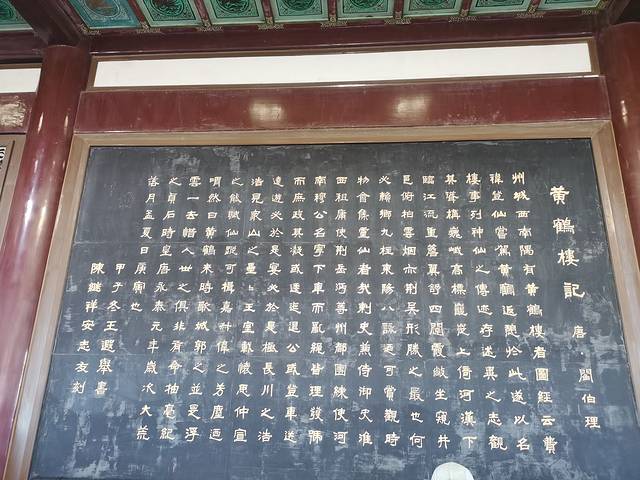 黃鶴樓記 唐·閻伯理
州城西南隅有黃鶴樓者圖經云費
禕登仙嘗駕黃鶴返憩於此遂以名
樓事列神仙之傳迹存述異之志觀
其聳構巍峨高標巃嵸上倚河漢下
臨江流重簷翼舒四闥霞敞坐窺井
邑俯拍雲烟亦荊吳形勝之最也何
必瀨鄉九柱東陽八詠迺可賞觀時
物會集靈仙者哉刺史兼侍御史淮
西租庸使荊岳沔等州都團練使河
南穆公名寧下車而亂繩皆理發號
而庶政其凝或逶迤退公或登車送
遠遊必於是宴必於是極長川之浩
浩見衆山之疊疊王室載懷思仲宣
之能賦仙蹤可揖嘉叔偉之芳塵迺
喟然曰黃鶴來時歌城郭之並是浮
雲一去惜人世之俱非有命抽毫紀
之貞石時皇唐永泰元年歲次大荒
落月孟夏日庚寅也
甲子冬王遐舉書
陳継祥安志友刻